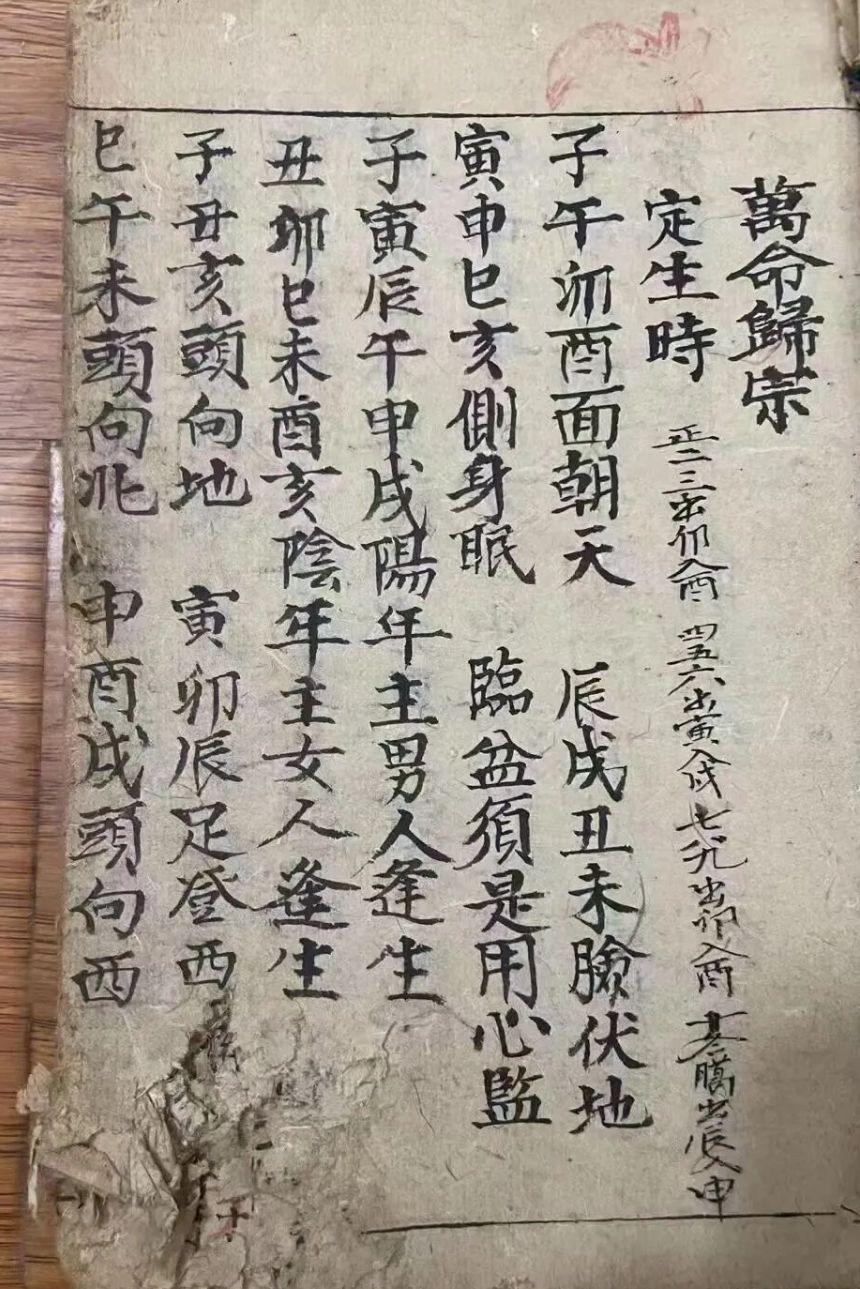 萬命歸宗
定生時 正二三出卯入酉 四五六出寅入戌 七八九出卯入酉 十冬臘出辰入申
子午卯酉面朝天 辰戌丑未臉伏地
寅申巳亥側身眠 臨盆須是用心監
子寅辰午申戌陽年主男人逢生
丑卯巳未酉亥陰年主女人逢生
子丑亥頭向地 寅卯辰足登西
巳午未頭向兆 申酉戌頭向西